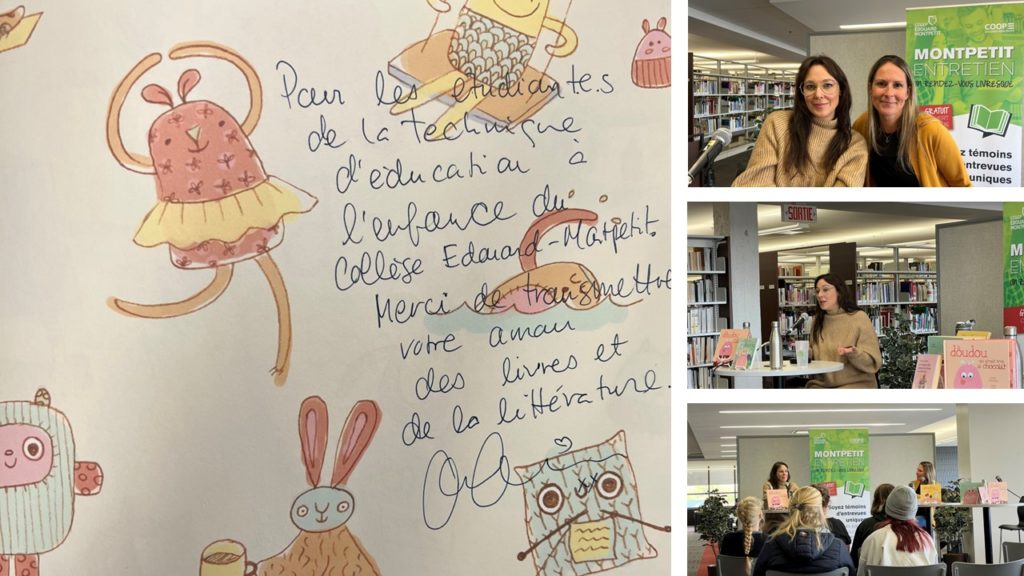 Pour les étudiantes
de la technique
d'éducation à
l'enfance du
Collège Edouard-Montpetit.
Merci de transmettre
votre amour
des livres et
de la littérature.
COOP
MONTPETIT
ENTRETIEN
UN RENDEZ-VOUS LIVRESQUE
GRATUIT
témoins
entrevues
uniques
SORTIE
doudou
chocolat
MONTPETIT
ENTRETIEN
Soyez témoins
d'entrevues
uniques